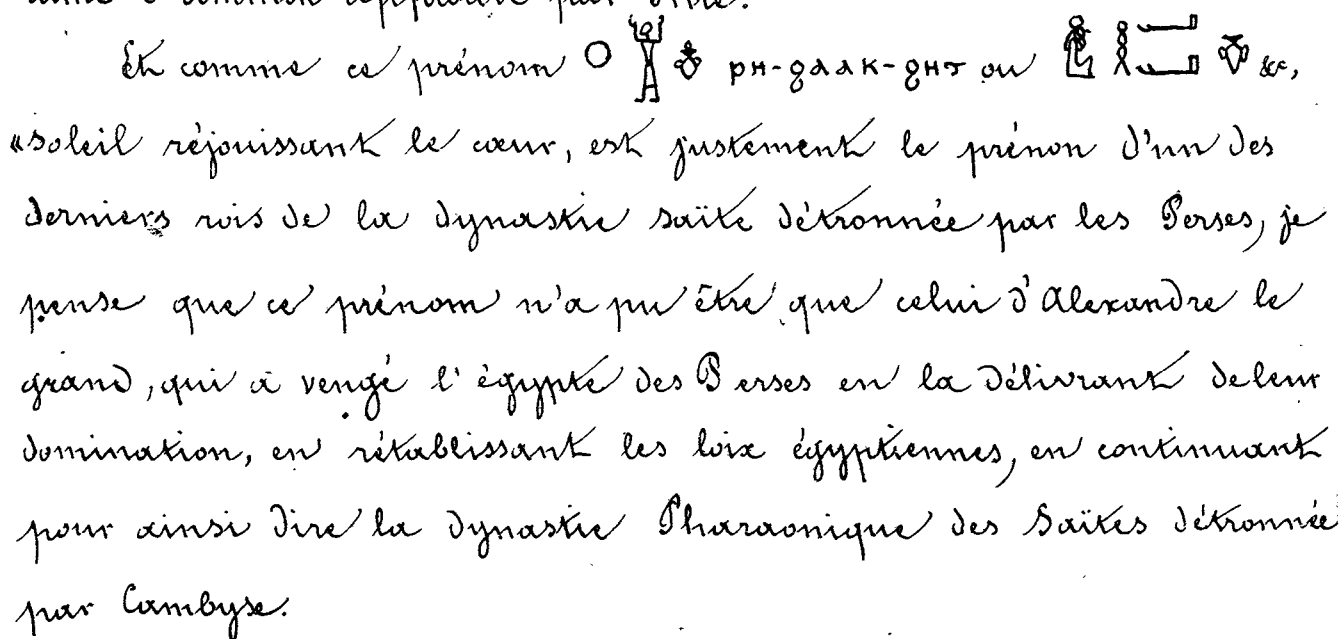 aimé d'ammon approuvé par Phré.
Et comme ce prénom 𓇳 𓀠 𓄣 ⲣⲏ-ϩⲁⲁⲕ-ϩⲏⲧ ou 𓎛𓂝𓂝 𓄣 &c,
«soleil réjouissant le cœur, est justement le prénon d'un des
derniers rois de la dynastie saïte détronnée par les Perses, je
pense que ce prénom n'a pu être que celui d'Alexandre le
grand, qui a vengé l'égypte des Perses en la délivrant de leur
domination, en rétablissant les loix égyptiennes, en continuant
pour ainsi dire la dynastie Pharaonique des Saïtes détronnée
par Cambyse.